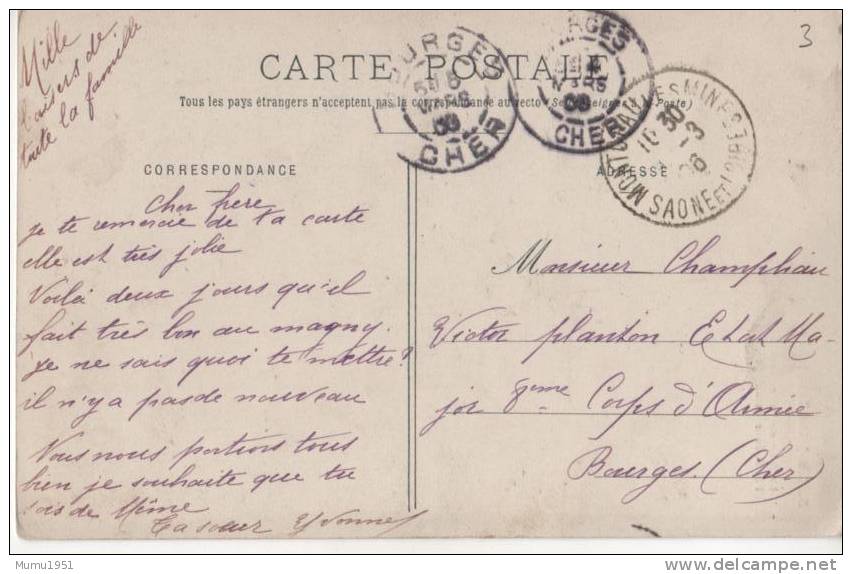 Mille
baisers de
toute la famille
3
CARTE POSTALE
Tous les pays étrangers n'acceptent pas la correspondance au recto (Se renseigner à la Poste)
BOURGES
CHER
BOURGES
CHER
MONTCEAU-LES-MINES
SAONE ET LOIRE
CORRESPONDANCE
ADRESSE
Cher frère
Je te remercie de ta carte
elle est très jolie
Voilà deux jours qu'il
fait très bon au magny.
Je ne sais quoi te mettre?
il n'y a pas de nouveau
Vous nous portons tous
bien je souhaite que tu
sois de Même
Ta sœur Yvonne
Monsieur Champliau
Victor planton Etat Ma-
jor 8eme Corps d'Armée
Bourges (Cher)
Mumu1951
delcampe.net